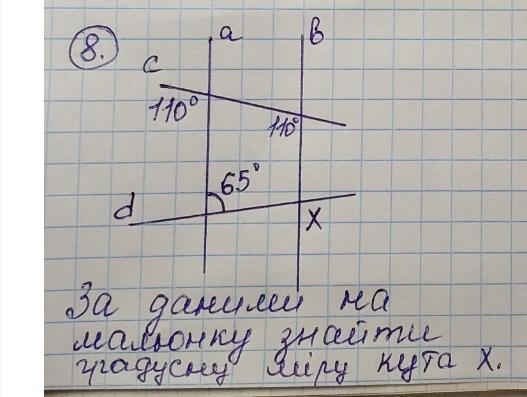 8.
a
в
c
110°
110°
65°
d
x
За даними на
малюнку знайти
градусну міру кута x.